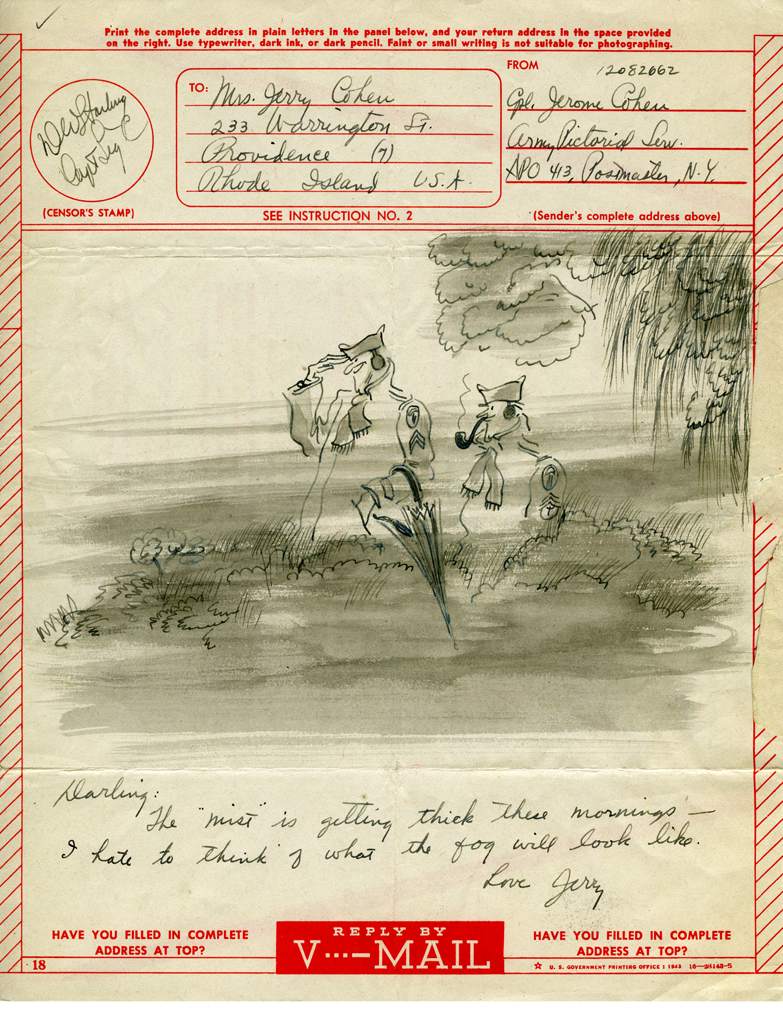 Print the complete address in plain letters in the panel below, and your return address in the space provided
on the right. Use typewriter, dark ink, or dark pencil. Faint or small writing is not suitable for photographing.
FROM
12082662
TO: Mrs. Jerry Cohen
233 Warrington St.
Providence (7)
Rhode Island U.S.A.
Cpl. Jerome Cohen
Army Pictorial Serv.
APO 413, Postmaster, N.Y.
Capt Sig C
(CENSOR'S STAMP)
SEE INSTRUCTION NO. 2
(Sender's complete address above)
Darling:
The "mist" is getting thick these mornings —
I hate to think of what the fog will look like.
Love Jerry
HAVE YOU FILLED IN COMPLETE
ADDRESS AT TOP?
REPLY BY
V···—MAIL
HAVE YOU FILLED IN COMPLETE
ADDRESS AT TOP?
18
☆ U. S. GOVERNMENT PRINTING OFFICE : 1943 16—28143-5